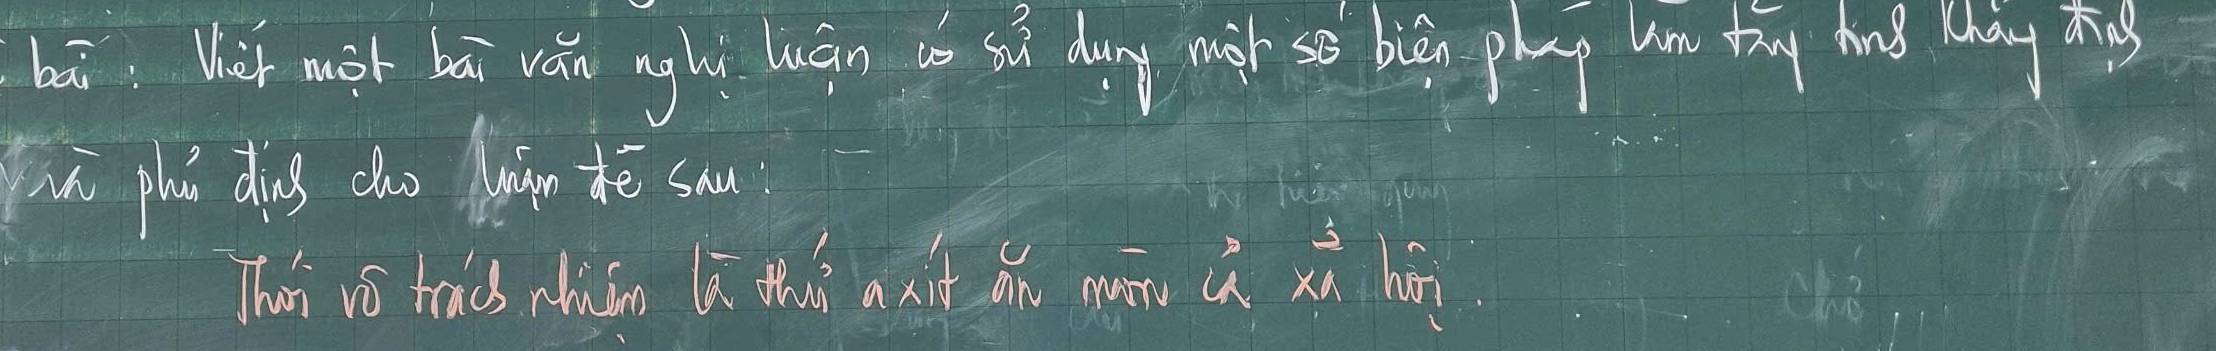 bài: Viết một bài văn nghị luận có sử dụng một số biện pháp làm tăng tính khẳng định
và phủ định cho luận đề sau:
Thói vô trách nhiệm là thứ axít ăn mòn cả xã hội.